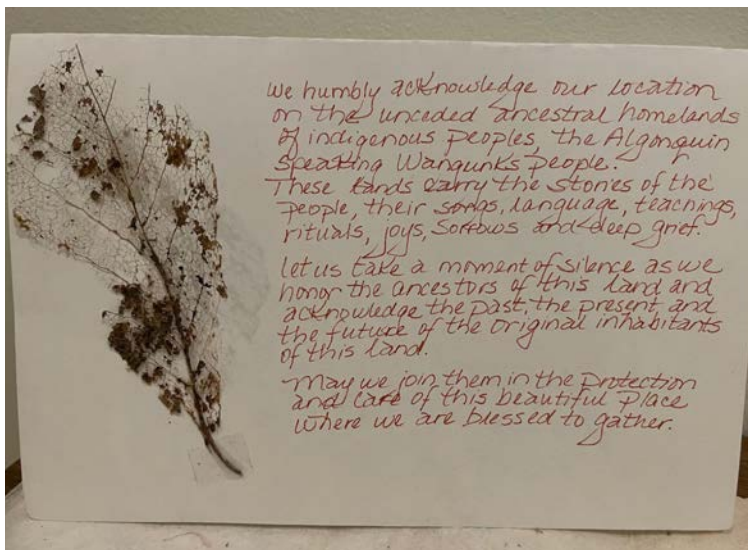 We humbly acknowledge our location
on the unceded ancestral homelands
of indigenous peoples, the Algonquin
speaking Wangunks people.
These lands carry the stories of the
people, their songs, language, teachings,
rituals, joys, sorrows and deep grief.
Let us take a moment of silence as we
honor the ancestors of this land and
acknowledge the past, the present, and
the future of the original inhabitants
of this land.
May we join them in the protection
and care of this beautiful place
where we are blessed to gather.